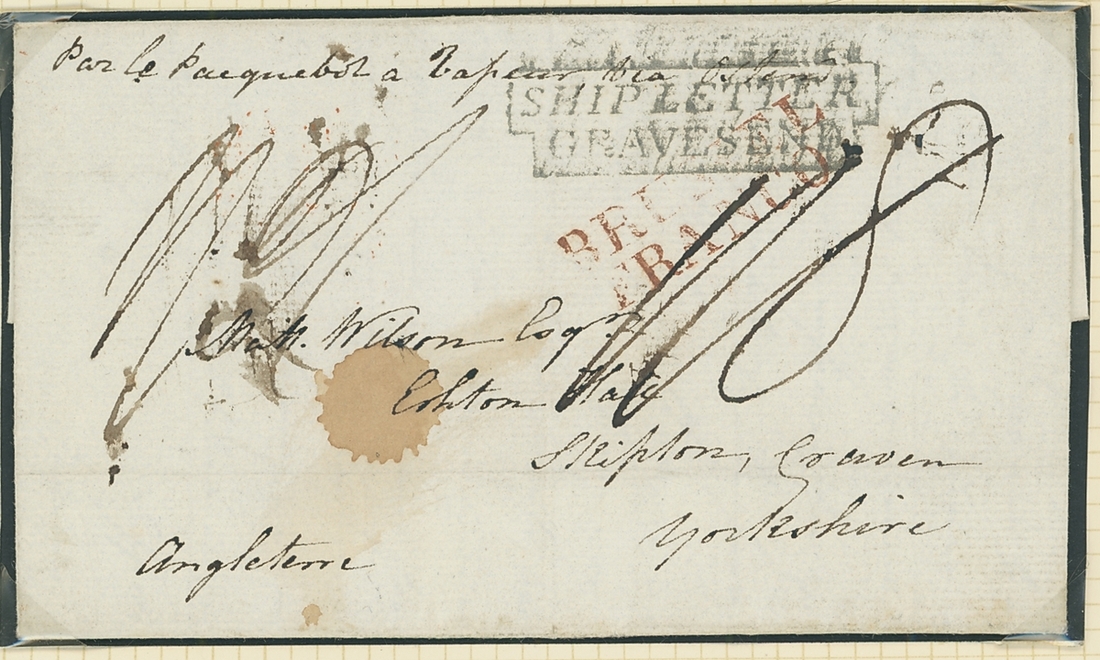 Par le Pacquebot a Vapeur via Ostend
SHIP LETTER
GRAVESEND
FRANCO
Matt. Wilson Esqr.
Eshton Hall
Skipton, Craven
Yorkshire
Angleterre